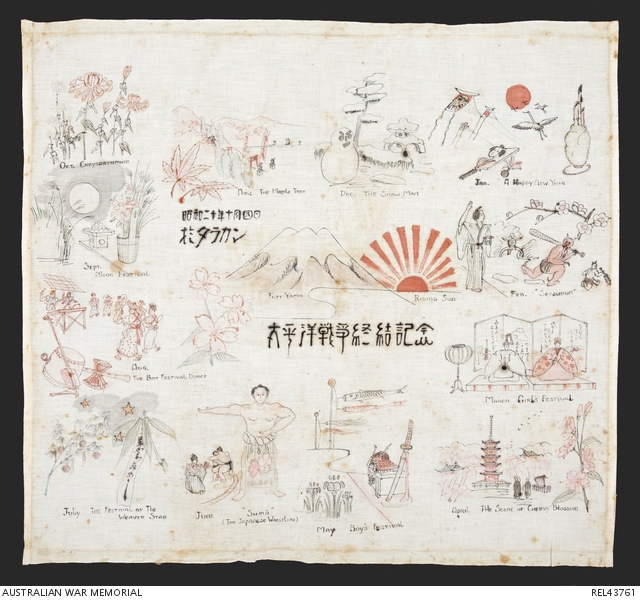 Oct. Chrysanthemum
Nov. The Maple Tree
Dec. The Snow Man
Jan. A Happy New Year
昭和二十年十月四日
於タラカン
Sept.
Moon Festival
Fuji Yama
Rising Sun
Feb. "Setsubun"
太平洋戦争終結記念
Aug.
The Bon Festival Dance
March Girl's Festival
July The Festival of The
Weaver Star
June
"Sumo"
(The Japanese Wrestling)
May Boy's Festival
April The Scene of Cherry Blossom
AUSTRALIAN WAR MEMORIAL
REL43761